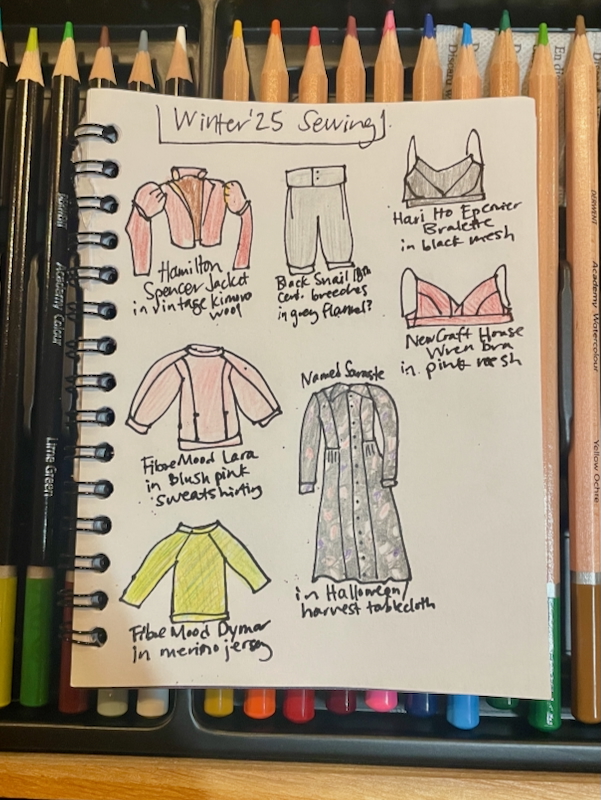 Winter '25 Sewing
Hamilton
Spencer Jacket
in vintage kimono
wool
Black Snail 18th
Cent. breeches
in grey flannel?
Hari Ho
Bralette
in black mesh
New Craft House
Wren bra
in pink mesh
Fibre Mood Lara
in blush pink
sweatshirting
Named
in Halloween/
harvest tablecloth
Fibre Mood Dymar
in merino jersey
Academy Colour
Lime Green
DERWENT
Academy Watercolour
Yellow Ochre